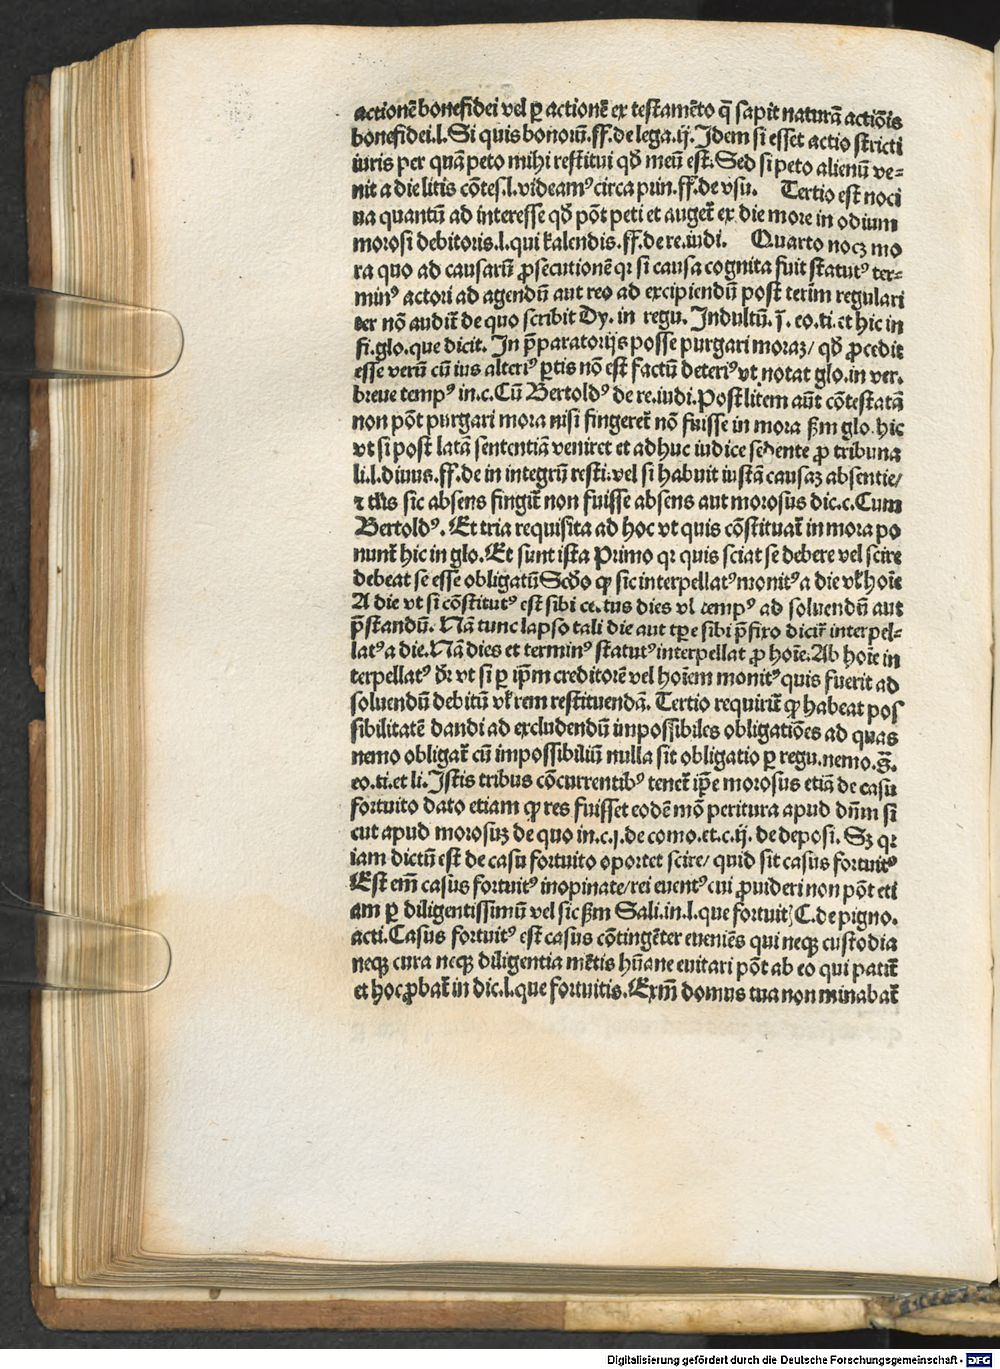 actionē bonefidei vel ꝑ actionē ex testamēto q̄ sapit naturā actiōis
bonefidei.l. Si quis bonoꝝ.ff.de lega.ij. Idem si esset actio stricti
iuris per quā peto mihi restitui qḋ meū est. Sed si peto alienū ve⸗
nit a die litis cōtes.l.videamꝰ circa prin.ff.de vsu. Tertio est noci
ua quantū ad interesse qḋ pōt peti et auget̄ ex die more in odium
morosi debitoris.l.qui kalendis.ff.de re.iudi. Quarto nocꝫ mo
ra quo ad causarū ꝓsecutionē qꝛ si causa cognita fuit statutꝰ ter⸗
minꝰ actori ad agendū aut reo ad excipiendū post terim regulari
ter nō audit̄ de quo scribit Dy. in regu. Indultū. ī. eo.ti.et hic in
fi.glo.que dicit. In p̄paratorijs posse purgari moraꝫ/ qḋ ꝓcedit
esse verū cū ius alteriꝰ ꝑtis nō est factū deteriꝰ vt notat glo.in ver.
breue tempꝰ in.c. Cū Bertoldꝰ de re.iudi. Post litem aūt cōtestatā
non pōt purgari mora nisi fingeret̄ nō fuisse in mora ẜm glo.hic
vt si post latā sententiā veniret et adhuc iudice sedente ꝓ tribuna
li.l.diuus.ff.de in integrū resti.vel si habuit iustā causaꝫ absentie/
⁊ tūs sic absens fingit̄ non fuisse absens aut morosus dic.c. Cum
Bertoldꝰ. Et tria requisita ad hoc vt quis cōstituat̄ in mora po
nunt̄ hic in glo. Et sunt ista Primo qꝛ quis sciat se debere vel scire
debeat se esse obligatū Scḋo ꝙ sic interpellatꝰ monitꝰ a die vl̄ hoīe
A die vt si cōstitutꝰ est sibi certus dies vl̄ tempꝰ ad soluendū aut
p̄standū. Nā tunc lapso tali die aut tꝑe sibi p̄fixo dicit̄ interpel⸗
latꝰ a die. Nā dies et terminꝰ statutꝰ interpellat ꝓ hoīe. Ab hoīe in
terpellatꝰ dr̄ vt si ꝑ ip̄m creditorē vel hoīem monitꝰ quis fuerit ad
soluendū debitū vl̄ rem restituendā. Tertio requirit̄ ꝙ habeat pos
sibilitatē dandi ad excludendū impossibiles obligatiōes ad quas
nemo obligat̄ cū impossibiliū nulla sit obligatio ꝑ regu.nemo.s̄.
eo.ti.et li. Istis tribus cōcurrentibꝰ tenet̄ ip̄e morosus etiā de casu
fortuito dato etiam ꝙ res fuisset eodē mō peritura apud dn̄m si
cut apud morosuꝫ de quo in.c.j.de como.et.c.ij. de deposi. Sꝫ qꝛ
iam dictū est de casu fortuito oportet scire/ quid sit casus fortuitꝰ
Est em̄ casus fortuitꝰ inopinate/rei euentꝰ cui ꝓuideri non pōt eti
am ꝑ diligentissimū vel sic ẜm Sali.in.l.que fortuitꝭ C.de pigno.
acti. Casus fortuitꝰ est casus cōtingēter eueniēs qui neqꝫ custodia
neqꝫ cura neqꝫ diligentia mētis hūane euitari pōt ab eo qui patit̄
et hoc ꝓbat̄ in dic.l.que fortuitis. Exm̄ domus tua non minabat̄
Digitalisierung gefördert durch die Deutsche Forschungsgemeinschaft - DFG